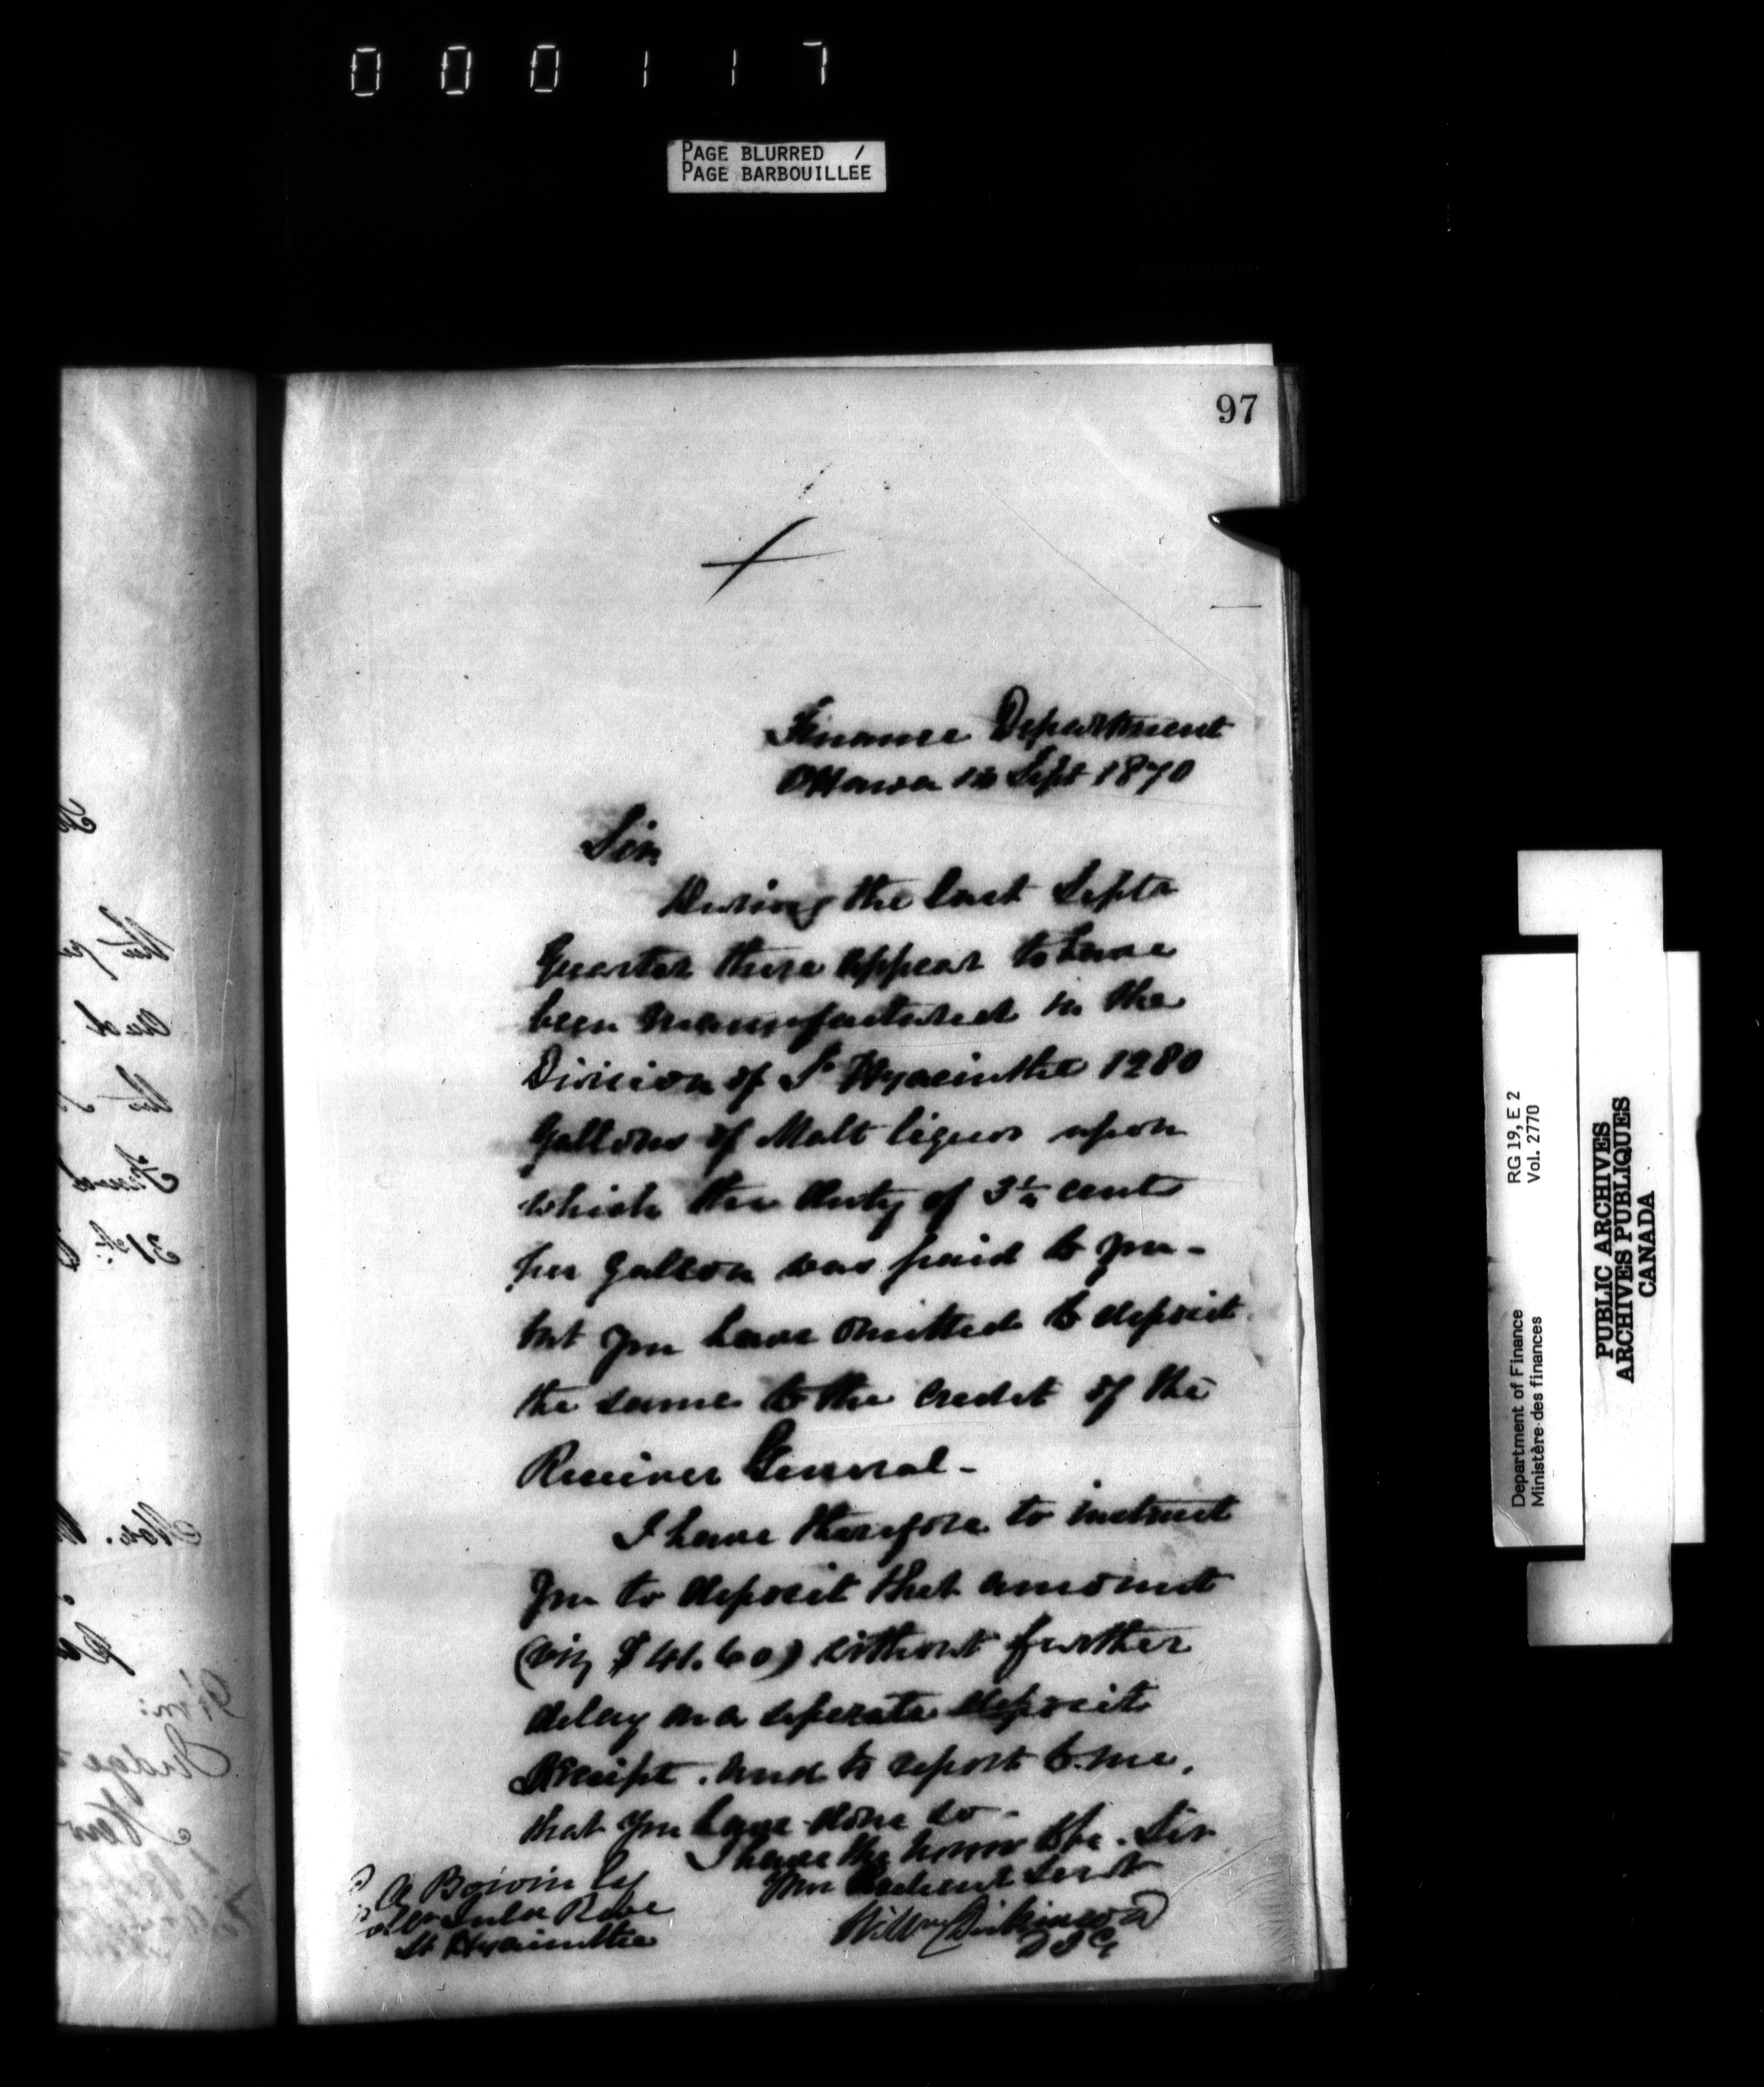 000117
PAGE BLURRED /
PAGE BARBOUILLÉE
97
Finance Department
Ottawa Sept 1870
Sir
During the last Septr
Quarter there appear to have
been manufactured in the
Division of St Hyacinthe 1280
Gallons of Malt liquor upon
which the duty of 3¼ cents
per Gallon was paid to you -
but you have omitted to deposit
the same to the credit of the
Receiver General -
I have therefore to instruct
you to deposit that amount
(viz $ 41.60) without further
delay on a seperate deposit
Receipt. And to report to me,
that you have done so -
I have the honor to be. Sir
Your Obedient Servt
Wm Dickinson
D I G
Boivin Esq
Inld Reve
St Hyacinthe
RG 19, E 2
Vol. 2770
Department of Finance
Ministère des finances
PUBLIC ARCHIVES
ARCHIVES PUBLIQUES
CANADA